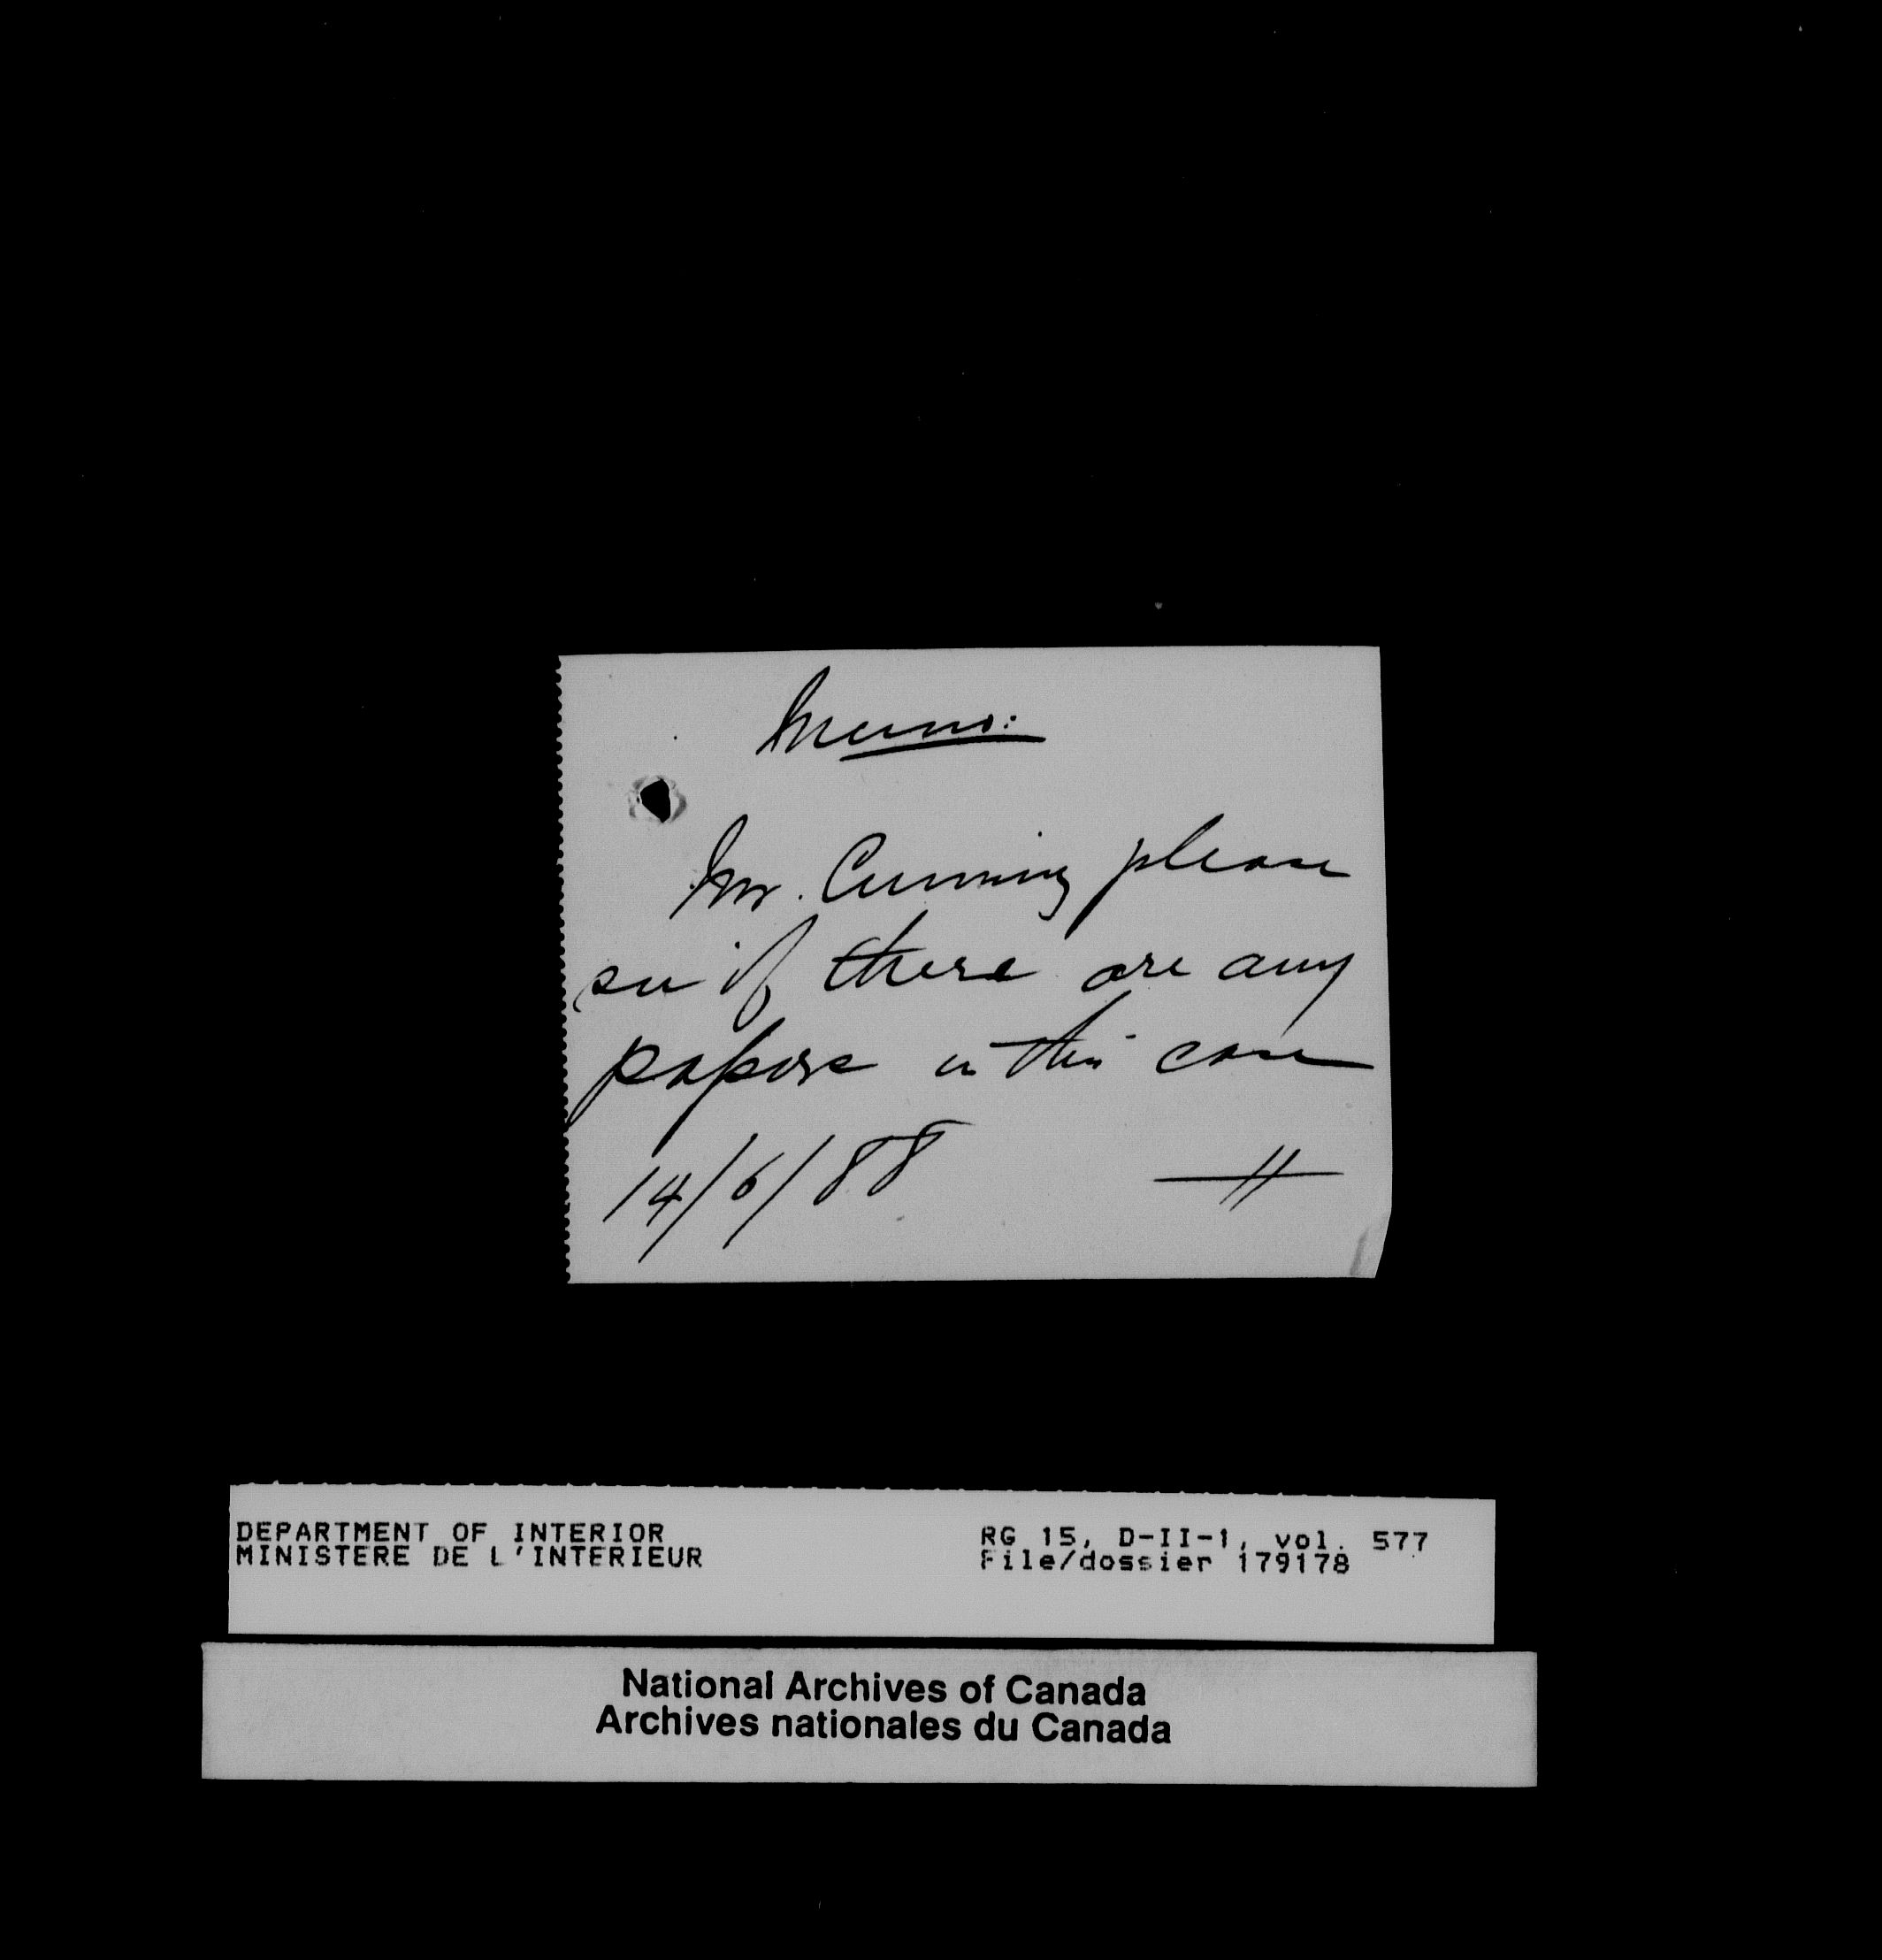 Memo:
Mr. Cumming please
see if there are any
papers in this case
14/6/88 H
DEPARTMENT OF INTERIOR
MINISTERE DE L'INTERIEUR
RG 15, D-II-1, vol. 577
File/dossier 179178
National Archives of Canada
Archives nationales du Canada